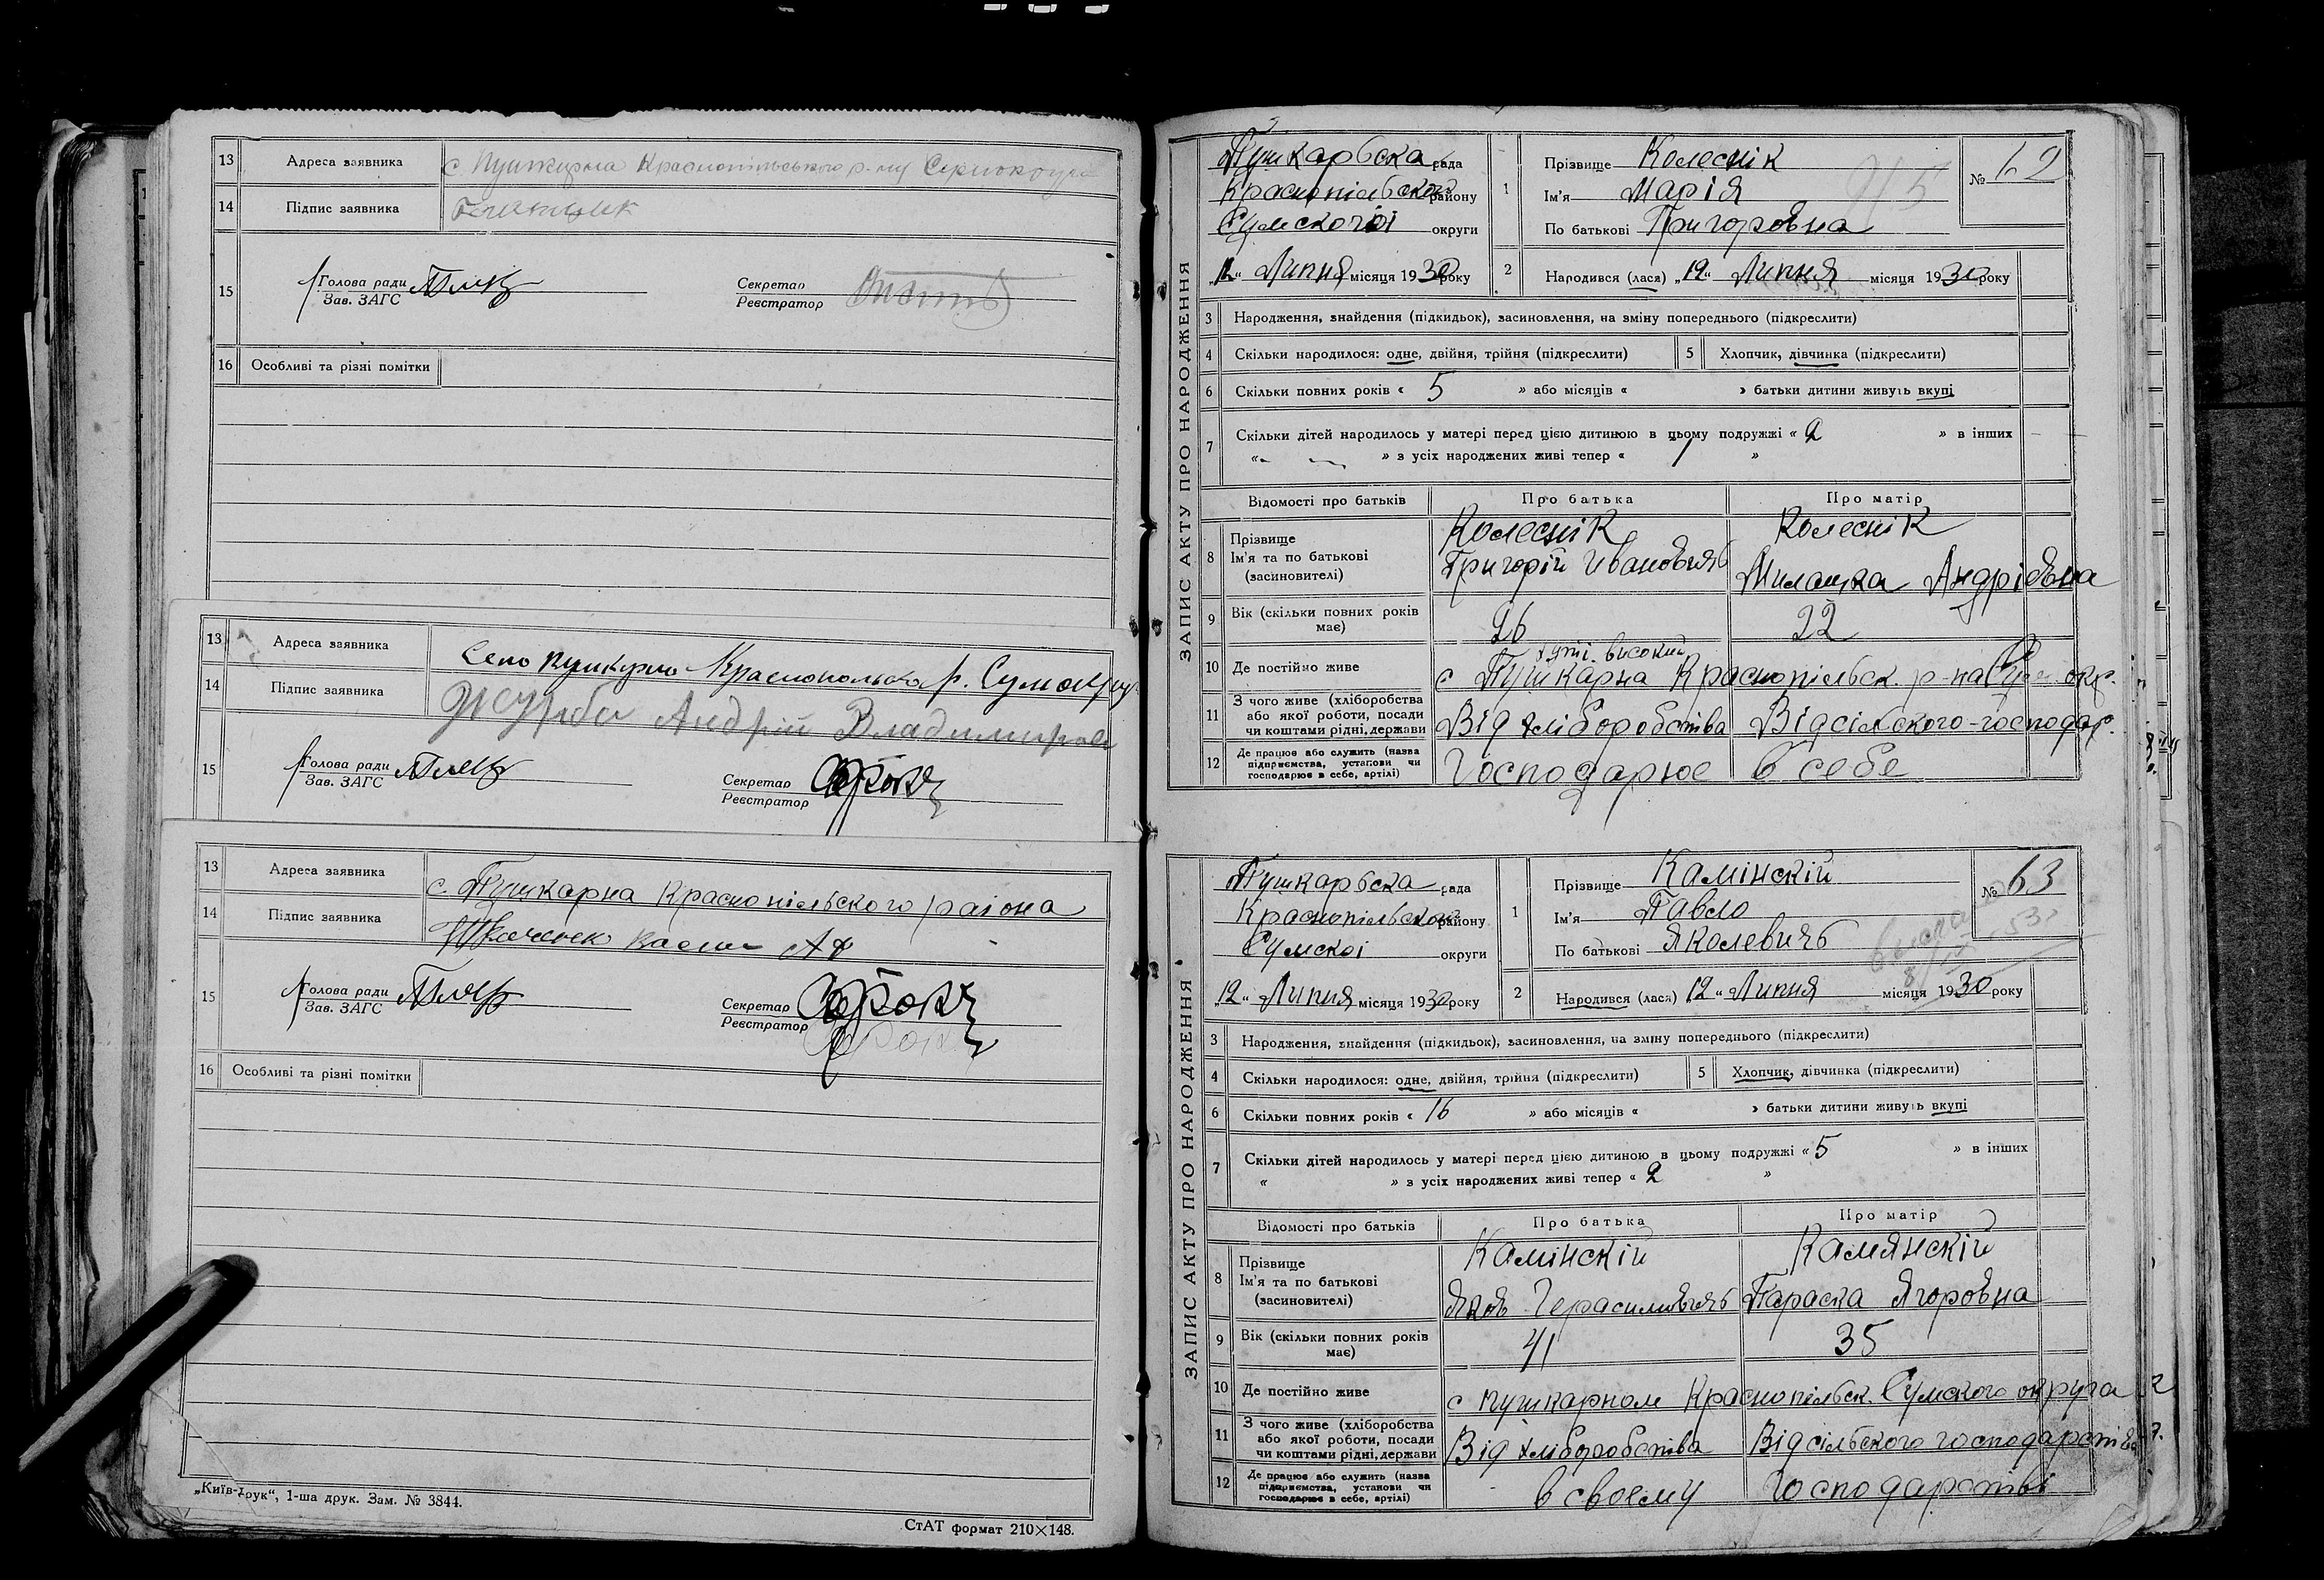 13 Адреса заявника с Пушкарна Краснопільського р-ну Сумокруги
14 Підпис заявника
15 Голова ради
Зав. ЗАГС
Секретар
Реєстратор
16 Особливі та різні помітки
13 Адреса заявника Село Пушкарна Краснопольско р. Сумокруг
14 Підпис заявника Журба Андрій Владимиров
15 Голова ради
Зав. ЗАГС
Секретар
Реєстратор
13 Адреса заявника с. Пушкарна Краснопільского раіона
14 Підпис заявника
15 Голова ради
Зав. ЗАГС
Секретар
Реєстратор
16 Особливі та різні помітки
„Київ-друк“, 1-ша друк. Зам. № 3844.
СтАТ формат 210×148.
ЗАПИС АКТУ ПРО НАРОДЖЕННЯ
Пушкарьска рада
Краснопільскоі району
Сумскоі округи
„12“ Липня місяця 1930 року
1 Прізвище Колеснік
Ім'я Марія
По батькові Григоровна
№ 62
2 Народився (лася) „12“ Липня місяця 1930 року
3 Народження, знайдення (підкидьок), засиновлення, на зміну попереднього (підкреслити)
4 Скільки народилося: одне, двійня, трійня (підкреслити) 5 Хлопчик, дівчинка (підкреслити)
6 Скільки повних років « 5 » або місяців « » батьки дитини живуть вкупі
7 Скільки дітей народилось у матері перед цією дитиною в цьому подружжі « 2 » в інших
« » з усіх народжених живі тепер « 1 »
Відомості про батьків Про батька Про матір
8 Прізвище Колеснік Колеснік
Ім'я та по батькові Григорій Ивановичь Милашка Андріевна
(засиновителі)
9 Вік (скільки повних років має) 26 22
хуті. високий
10 Де постійно живе с Пушкарна Краснопільск. р-на Сум. окр.
11 З чого живе (хліборобства або якої роботи, посади чи коштами рідні, держави Від хліборобства Від сільского-господар.
12 Де працює або служить (назва підприємства, установи чи господарює в себе, артілі) Господарюе в себе
ЗАПИС АКТУ ПРО НАРОДЖЕННЯ
Пушкарьска рада
Краснопільскоі району
Сумскоі округи
„12“ Липня місяця 1930 року
1 Прізвище Камінскій
Ім'я Павло
По батькові Яколевичь
№ 63
2 Народився (лася) 12“ Липня місяця 1930 року
3 Народження, знайдення (підкидьок), засиновлення, на зміну попереднього (підкреслити)
4 Скільки народилося: одне, двійня, трійня (підкреслити) 5 Хлопчик, дівчинка (підкреслити)
6 Скільки повних років « 16 » або місяців « » батьки дитини живуть вкупі
7 Скільки дітей народилось у матері перед цією дитиною в цьому подружжі « 5 » в інших
« » з усіх народжених живі тепер « 2 »
Відомості про батьків Про батька Про матір
8 Прізвище Камінскій Камянскій
Ім'я та по батькові Яков Герасимовичь Параска Ягоровна
(засиновителі)
9 Вік (скільки повних років має) 41 35
10 Де постійно живе с пушкарном Краснопільск. Сумского округа
11 З чого живе (хліборобства або якої роботи, посади чи коштами рідні, держави Від хліборобства Від сільського господарства
12 Де працює або служить (назва підприємства, установи чи господарює в себе, артілі) в своему господарстві